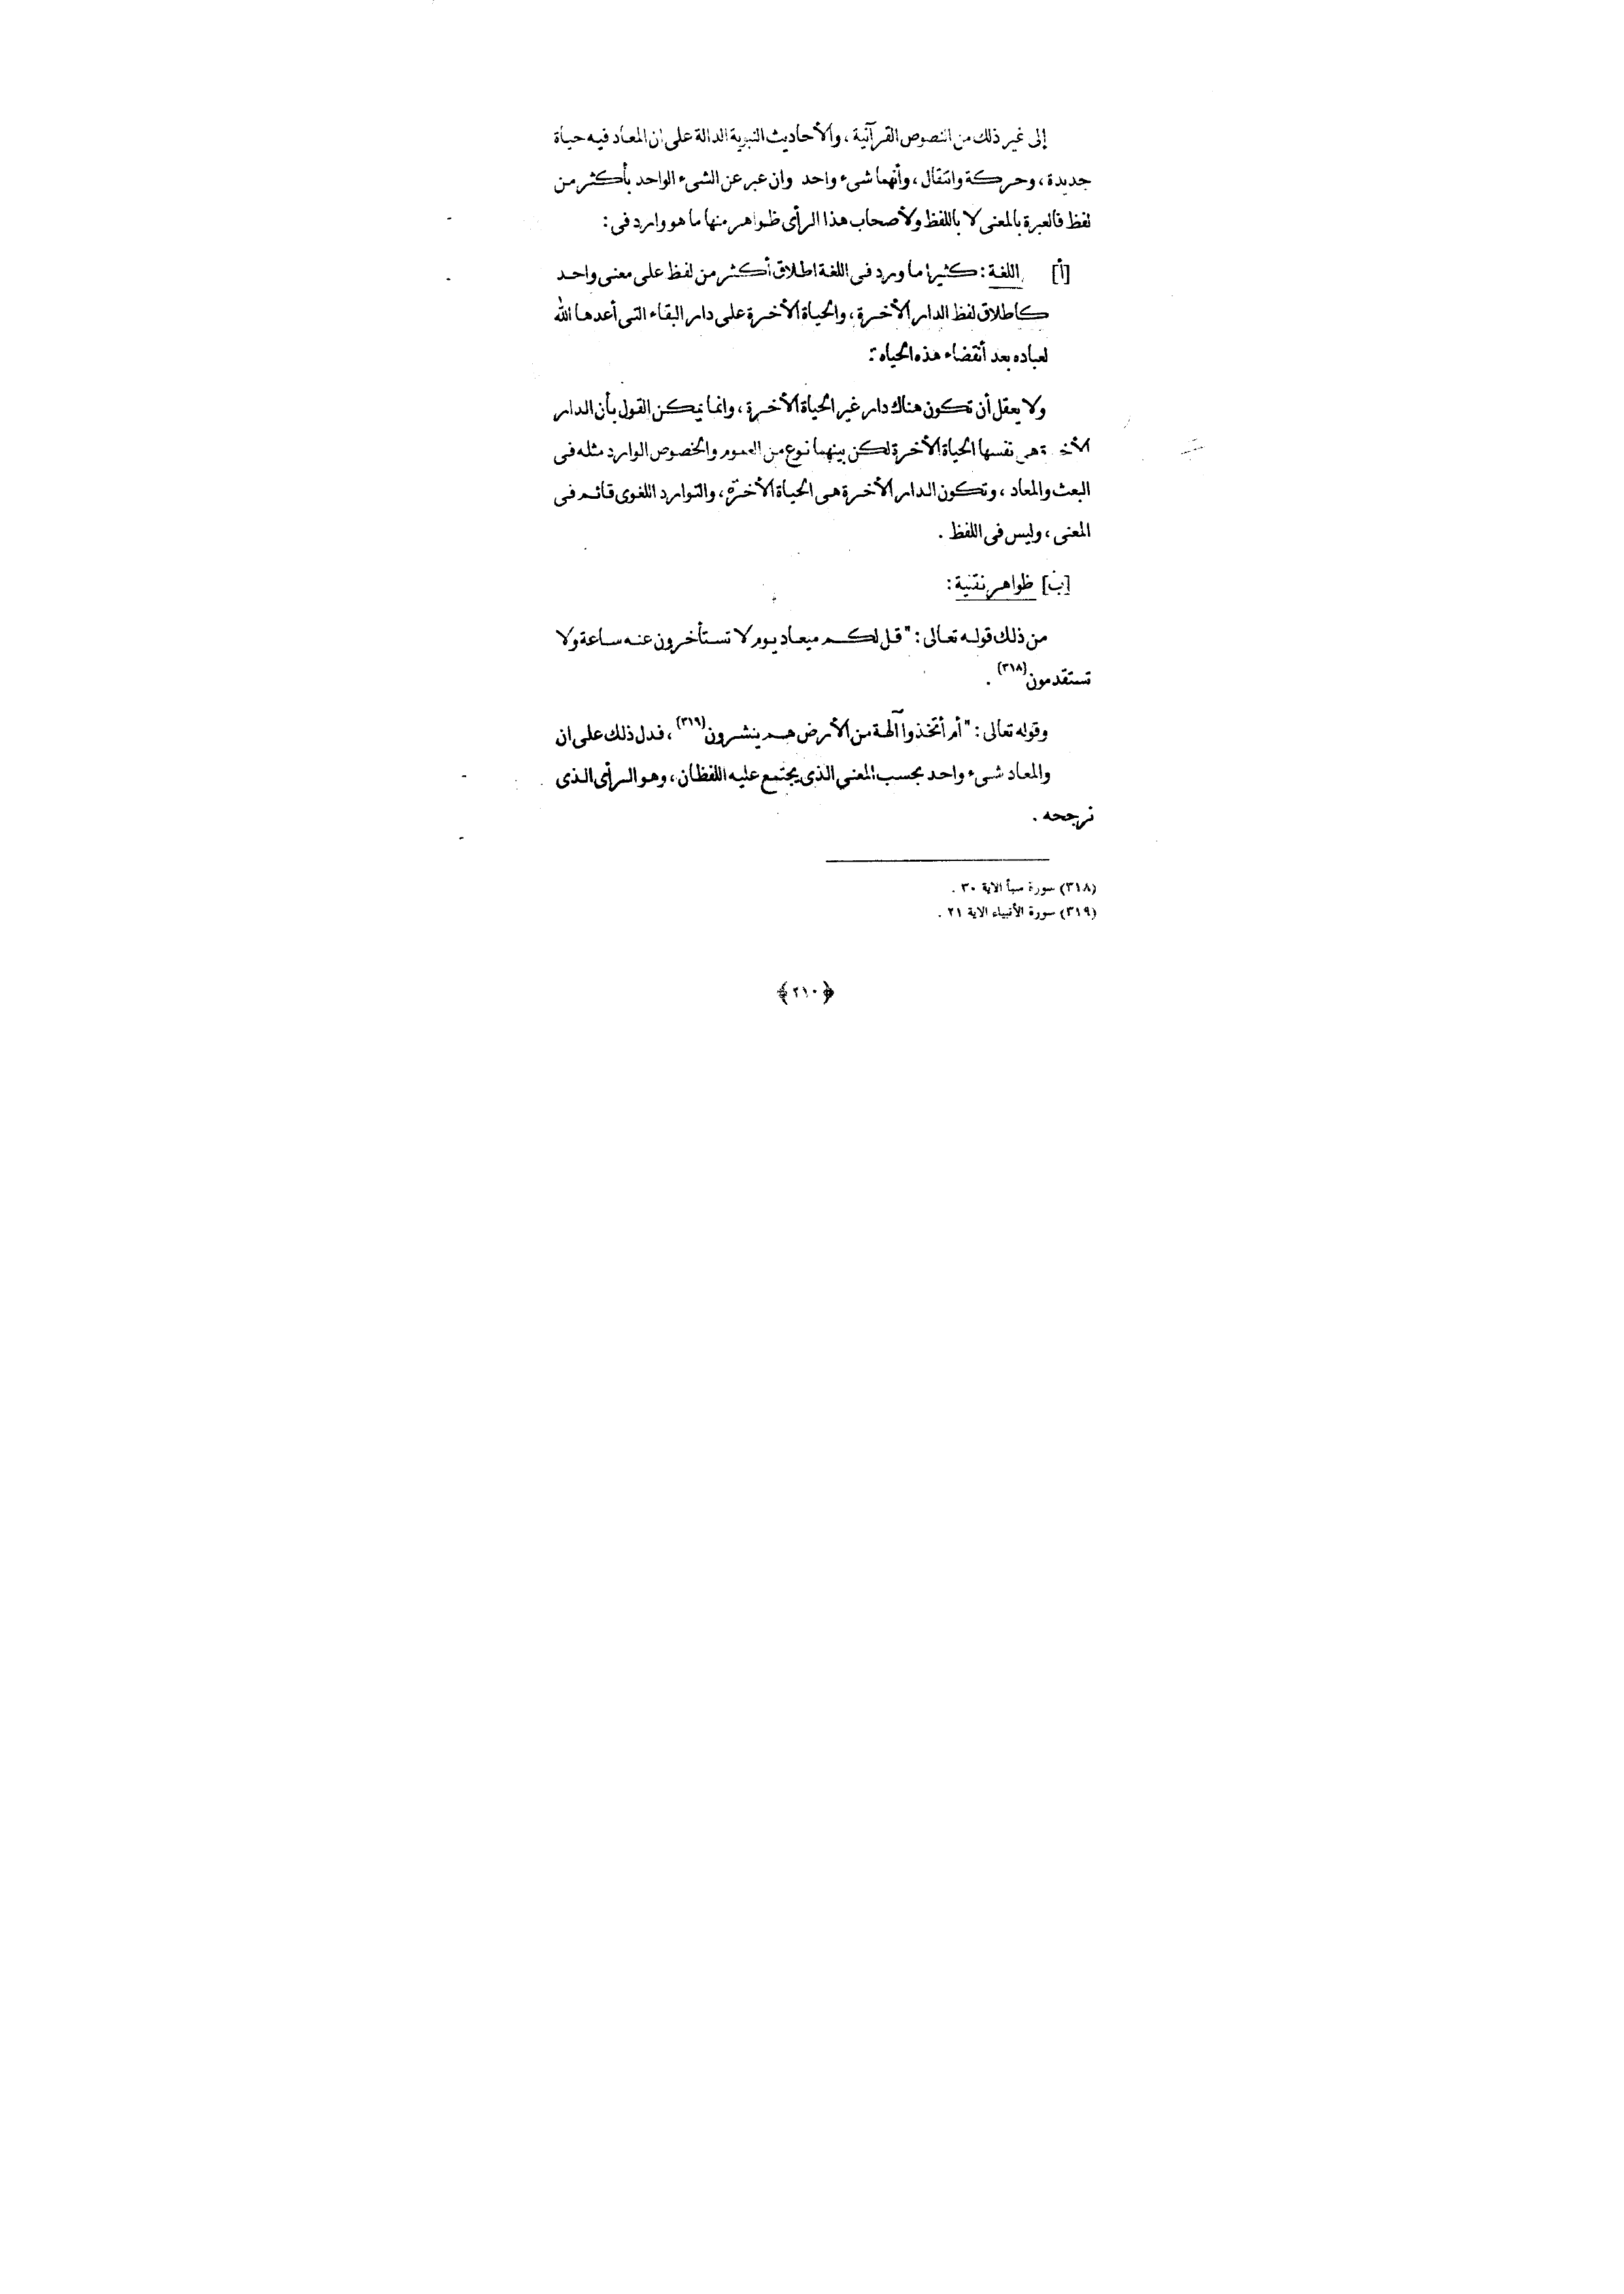 إلى غير ذلك من النصوص القرآنية ، والأحاديث النبوية الدالة على ان المعاد فيه حياة
جديدة ، وحركة وانتقال ، وأنهما شىء واحد وان عبر عن الشىء الواحد بأكثر من
لفظ فالعبرة بالمعنى لا باللفظ ولأصحاب هذا الرأى ظواهر منها ما هو وارد فى :
[أ] اللغة : كثيرا ما ورد فى اللغة اطلاق أكثر من لفظ على معنى واحد
كاطلاق لفظ الدار الأخرة ، والحياة الأخرة على دار البقاء التى أعدها الله
لعباده بعد أنقضاء هذه الحياه :
ولا يعقل أن تكون هناك دار غير الحياة الأخرة ، وانما يمكن القول بأن الدار
الأخرة هى نفسها الحياة الأخرة لكن بينهما نوع من العموم والخصوص الوارد مثله فى
البعث والمعاد ، وتكون الدار الأخرة هى الحياة الأخرة ، والتوارد اللغوى قائم فى
المعنى ، وليس فى اللفظ .
[ب] ظواهر نقلية :
من ذلك قوله تعالى : " قل لكم ميعاد يوم لا تستأخرون عنه ساعة ولا
تستقدمون (٣١٨) .
وقوله تعالى : " أم أتخذوا آلهة من الأرض هم ينشرون (٣١٩) ، فدل ذلك على ان
والمعاد شىء واحد بحسب المعنى الذى يجتمع عليه اللفظان ، وهو الرأى الذى
نرجحه .
(٣١٨) سورة سبأ الاية ٣٠ .
(٣١٩) سورة الأنبياء الاية ٢١ .
﴿٢١٠﴾